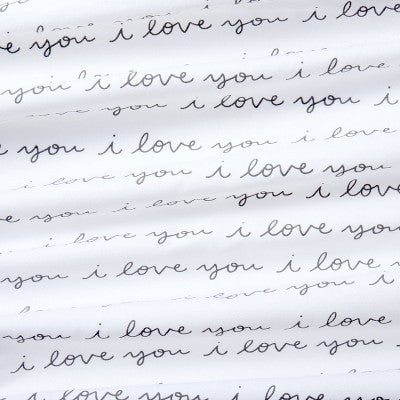 you i love you i love
you i love you i love
love you i love you i
you i love you i love
i love you i love you
i love you i love
i love you i love you
you i love you i love you
you i love
you i love you i love
i love you i love you
i love you i love you